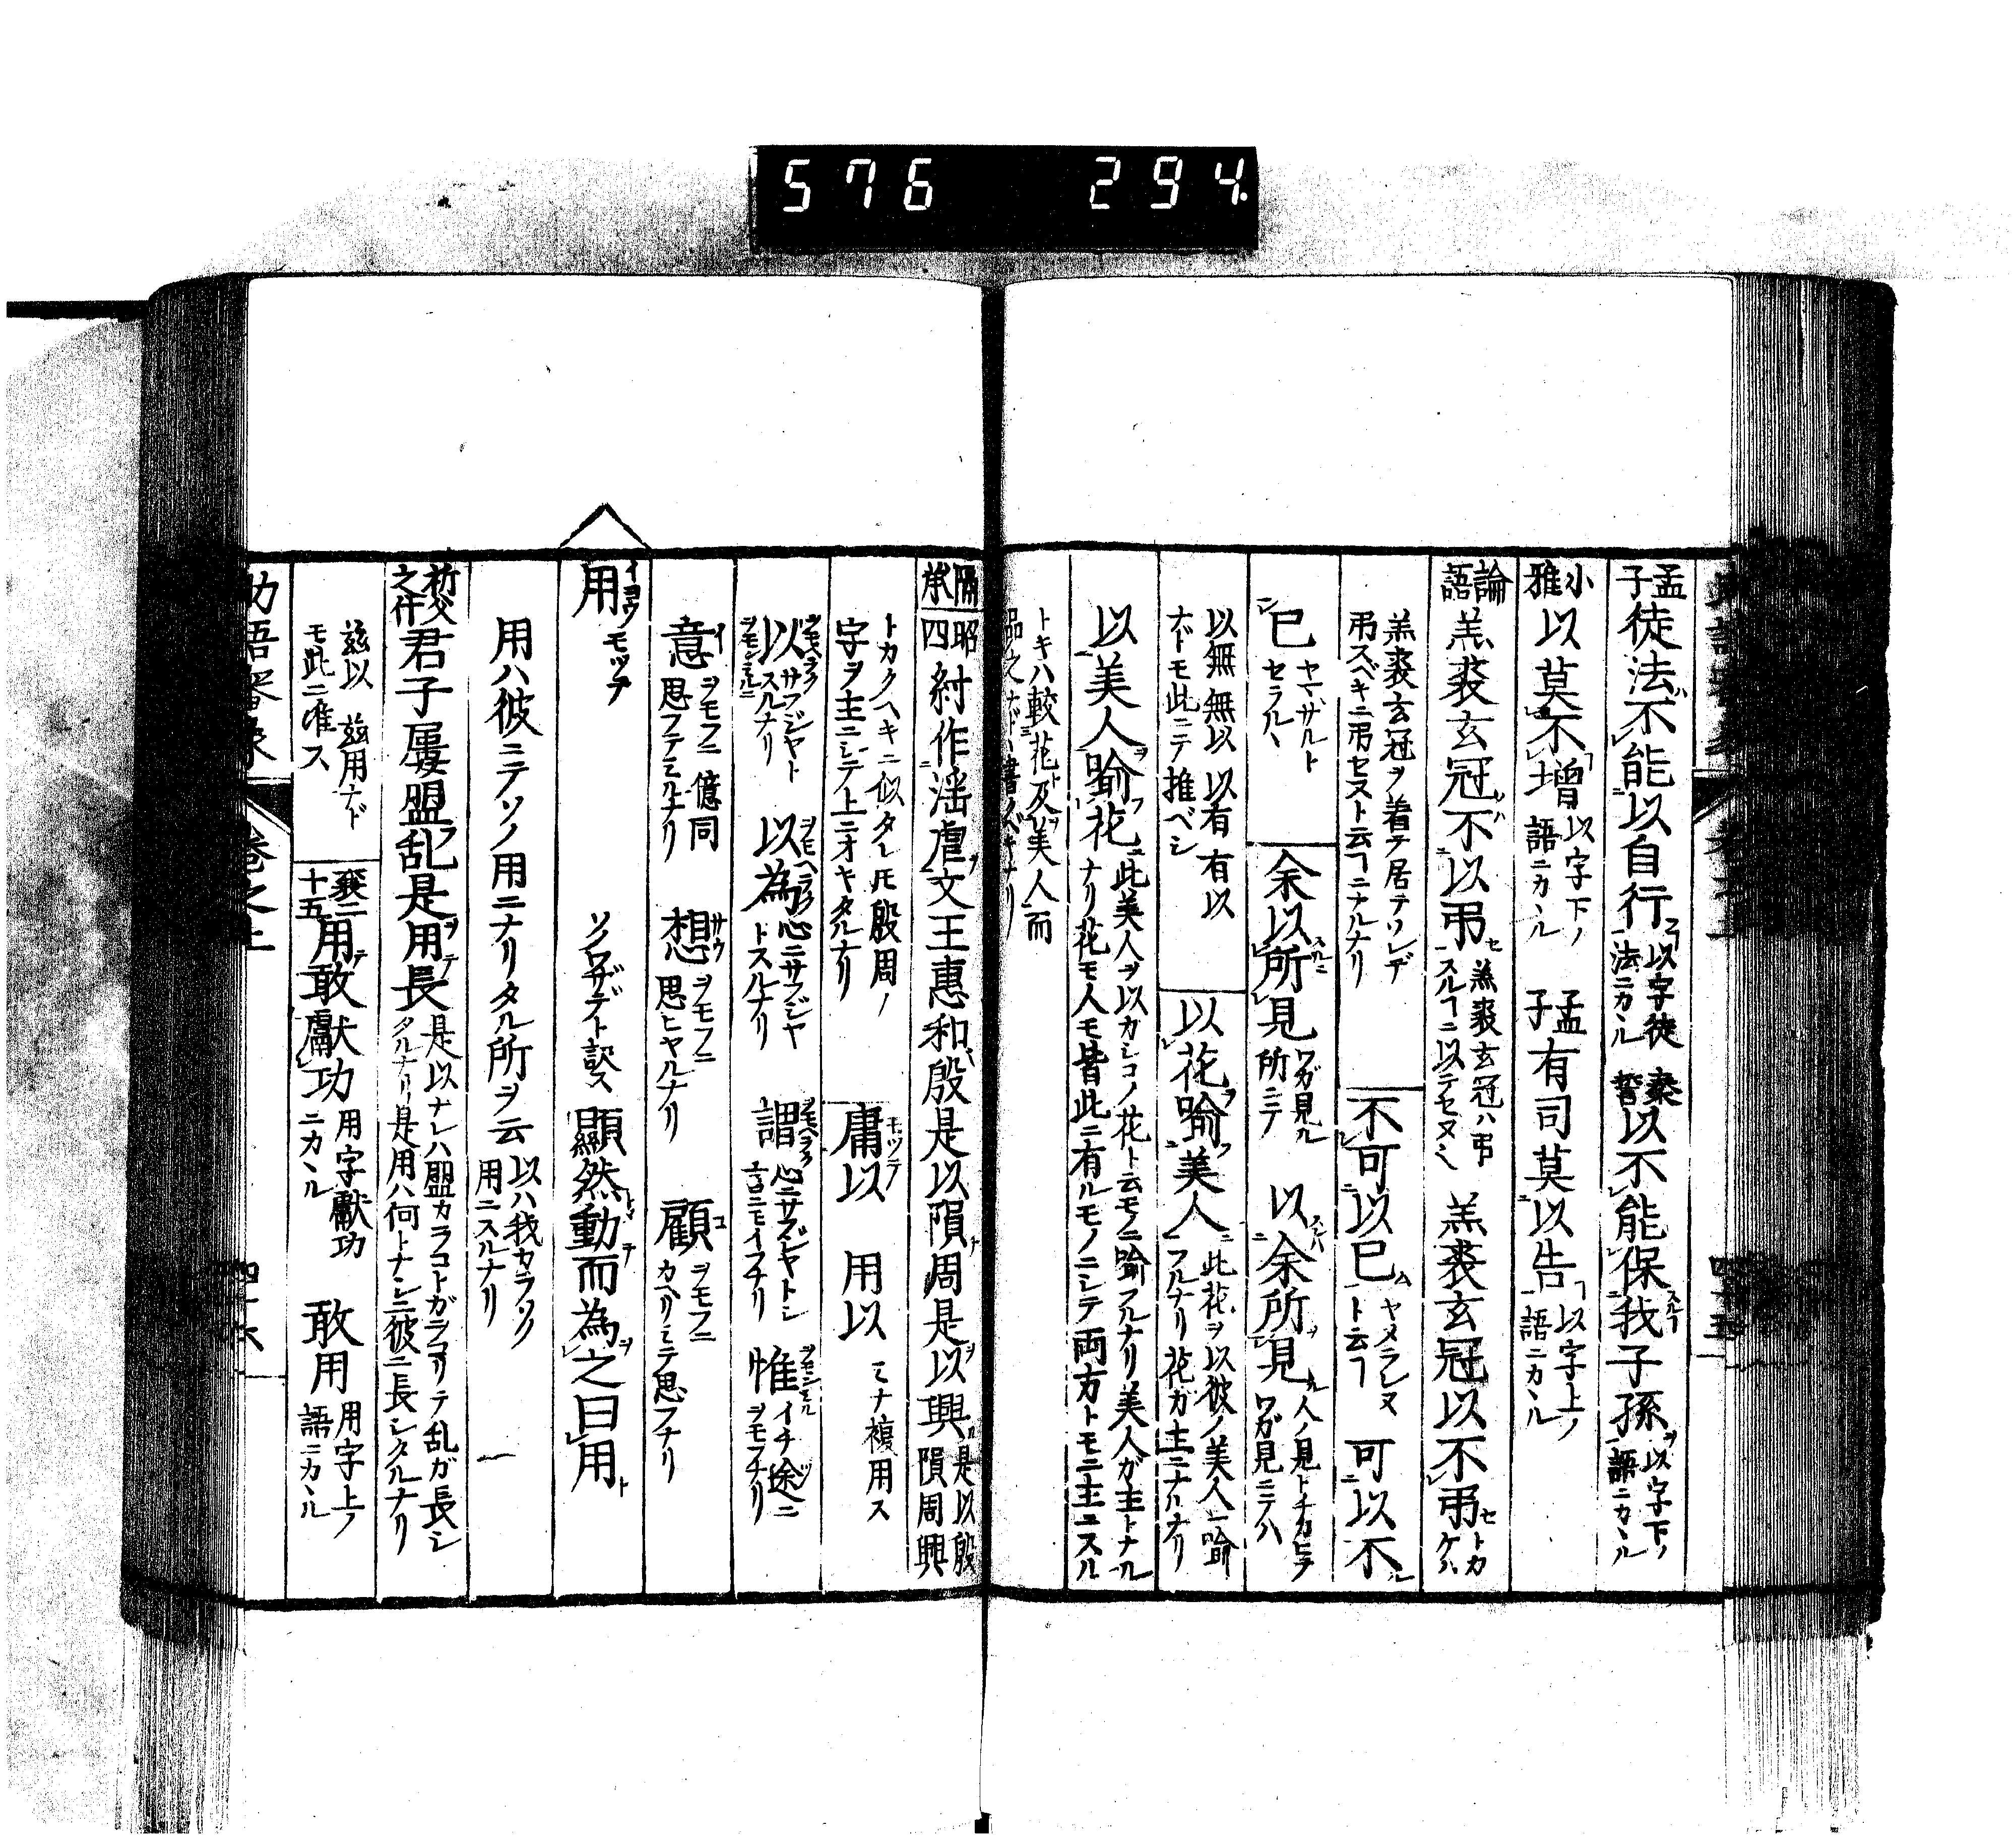 576 294
孟子徒法不能以自行 以字徒法ニカヽル 秦誓以不能保我子孫 以字下ノ語ニカヽル
小雅以莫不増 以字下ノ語ニカヽル 孟子有司莫以告 以字上ノ語ニカヽル
論語羔裘玄冠不以弔 羔裘玄冠ハ弔スルヿニ以テセヌ 羔裘玄冠以不弔 トカケハ
羔裘玄冠ヲ着テ居テソレデ弔スベキニ弔セヌト云ヿニナルナリ 不可以已 ヤメラレヌト云ヿ 可以不
已 ヤマザルトセラルヽ 余以所見 ワガ見ル所ニテ 以余所見 人ノ見トチガヒテワガ見ニテハ
以無 無以 以有 有以ナドモ此ニテ推ベシ 以花喩美人 此花ヲ以彼ノ美人ニ喩フルナリ花ガ主ニナルナリ
以美人喩花 此美人ヲ以カレコノ花ト云モノニ喩フルナリ美人ガ主トナルナリ花モ人モ皆此ニ有ルモノニシテ両方トモニ主ニスル
トキハ較花及美人而品之ナドヽ書クベキナリ
隔承 昭四 紂作淫虐文王惠和殷是以隕周是以興 是以殷隕周興
トカクヘキニ似タレ𪜈殷周ノ字ヲ主ニシテ上ニオキタルナリ 庸以 用以 ミナ複用ス
以 サフジヤトスルナリ 以為 心ニサフジヤトスルナリ 謂 心ニサフジヤトシ言ニモイフナリ 惟 イチ途ニヲモフナリ
意 ヲモフニ 億同 思フテミルナリ 想 ヲモフニ 思ヒヤルナリ 顧 ヲモフニ カヘリミテ思フナリ
用 イヨウ モッテ ソノワザデト訳ス 顯然動而為之曰用
用ハ彼ニテソノ用ニナリタル所ヲ云 以ハ我カラソノ用ニスルナリ
哲父之什君子屢盟乱是用長 是以ナレハ盟カラコトガヲコリテ乱ガ長シタルナリ是用ハ何トナシニ彼ニ長シタルナリ
茲以 茲用ナドモ此ニ准ス 襄二十五用敢獻功 用字獻功ニカヽル 敢用 用字上ノ語ニカヽル
助語審象 巻之上 四十六